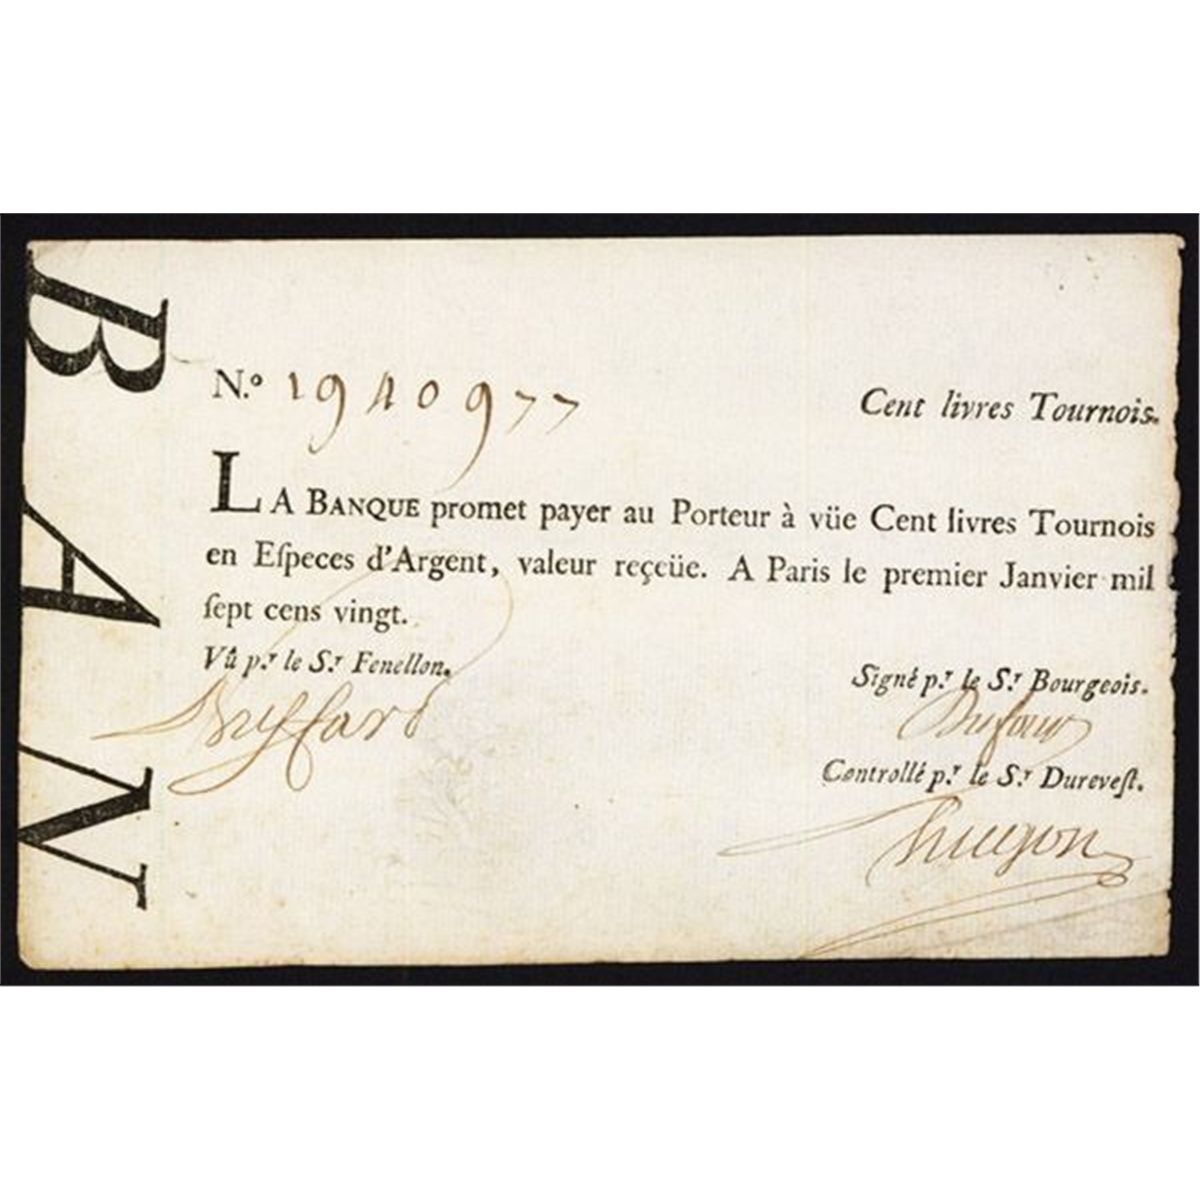 BAN
N.º 1940977
Cent livres Tournois.
LA BANQUE promet payer au Porteur à vüe Cent livres Tournois
en Eſpeces d'Argent, valeur reçeüe. A Paris le premier Janvier mil
ſept cens vingt.
Vû p.r le S.r Fenellon.
Signé p.r le S.r Bourgeois.
Controllé p.r le S.r Dureveſt.